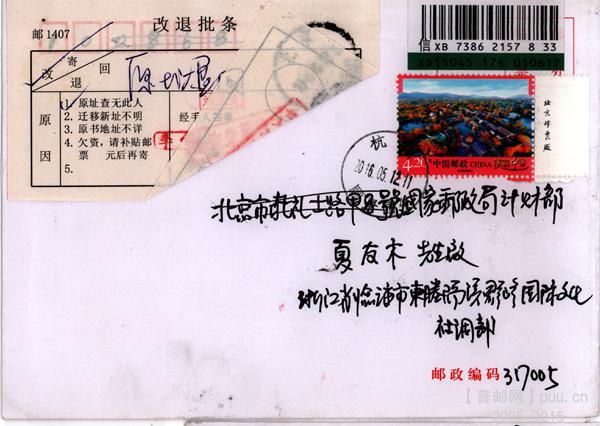 改退批条
邮1407
寄
回
改
退
原
因
1. 原址查无此人
2. 迁移新址不明
3. 原书地址不详
4. 欠资，请补贴邮
票 元后再寄
5.
经手
李
信 XB 7386 2157 8 33
XD15045 176 010617
北京邮票厂
4.20 中国邮政 CHINA
杭
2016.05.12.11
北京市北礼士路甲8号国家邮政局计财部
夏友木 先生启
浙江省临海市
国际文化
社调部
邮政编码 317005
【普邮网】puu.cn
2005-2016